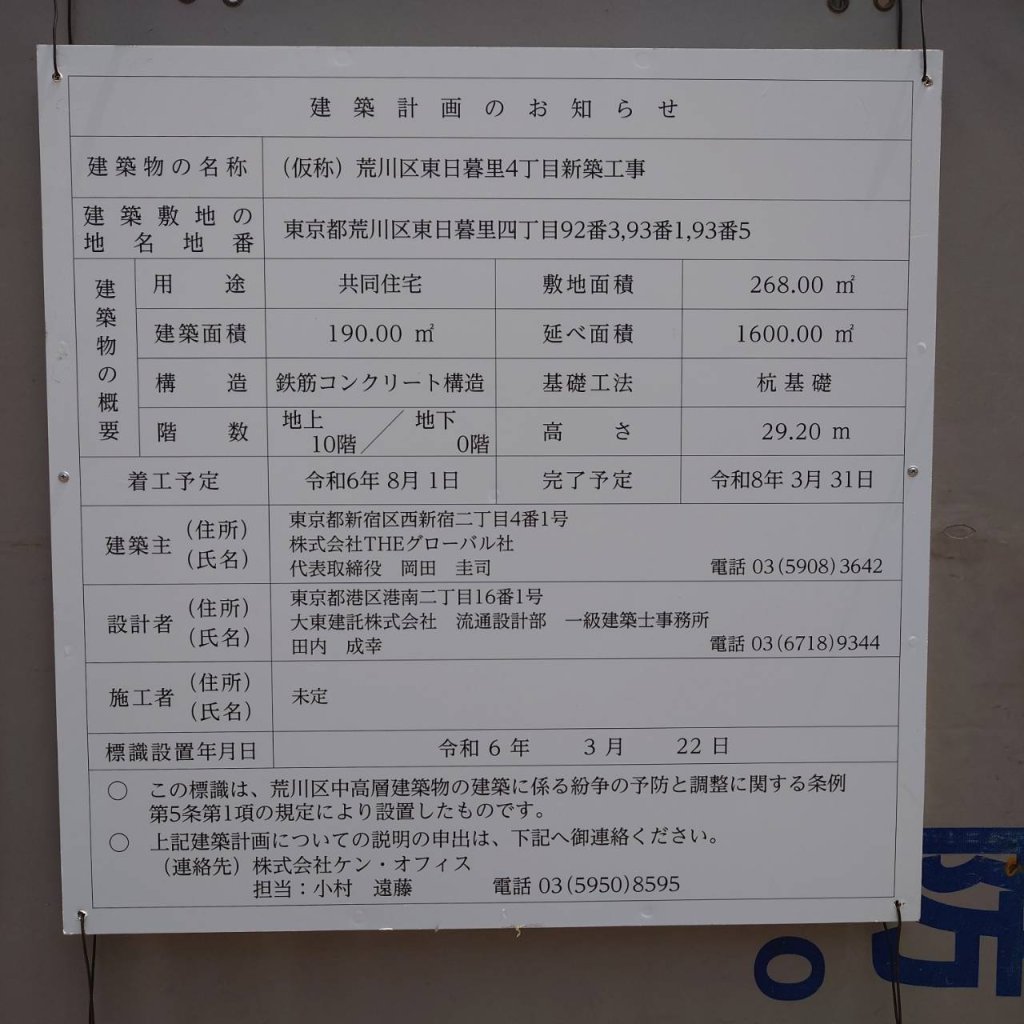 建築計画のお知らせ
建築物の名称 (仮称)荒川区東日暮里4丁目新築工事
建築敷地の地名地番 東京都荒川区東日暮里四丁目92番3,93番1,93番5
建築物の概要
用途 共同住宅 敷地面積 268.00 ㎡
建築面積 190.00 ㎡ 延べ面積 1600.00 ㎡
構造 鉄筋コンクリート構造 基礎工法 杭基礎
階数 地上 10階／地下 0階 高さ 29.20 m
着工予定 令和6年 8月 1日 完了予定 令和8年 3月 31日
建築主 (住所) (氏名)
東京都新宿区西新宿二丁目4番1号
株式会社THEグローバル社
代表取締役 岡田 圭司 電話 03(5908)3642
設計者 (住所) (氏名)
東京都港区港南二丁目16番1号
大東建託株式会社 流通設計部 一級建築士事務所
田内 成幸 電話 03(6718)9344
施工者 (住所) (氏名) 未定
標識設置年月日 令和 6 年 3 月 22 日
○ この標識は、荒川区中高層建築物の建築に係る紛争の予防と調整に関する条例
第5条第1項の規定により設置したものです。
○ 上記建築計画についての説明の申出は、下記へ御連絡ください。
(連絡先) 株式会社ケン・オフィス
担当：小村 遠藤 電話 03(5950)8595